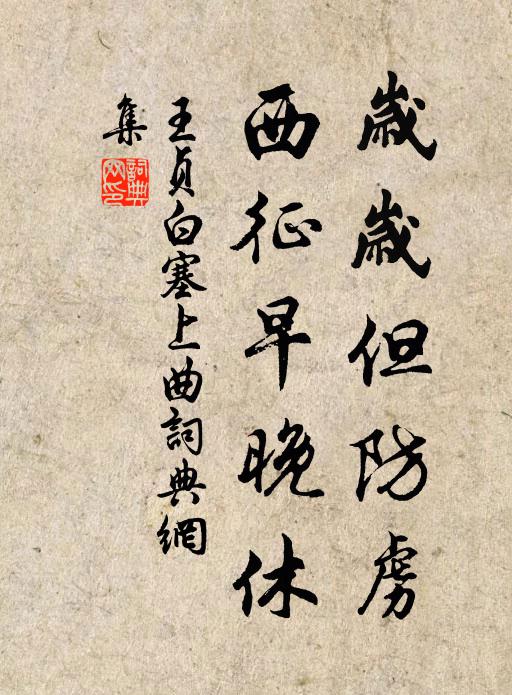 歲歲但防虜
西征早晚休
王貞白塞上曲詞典網
集
詞典
網印